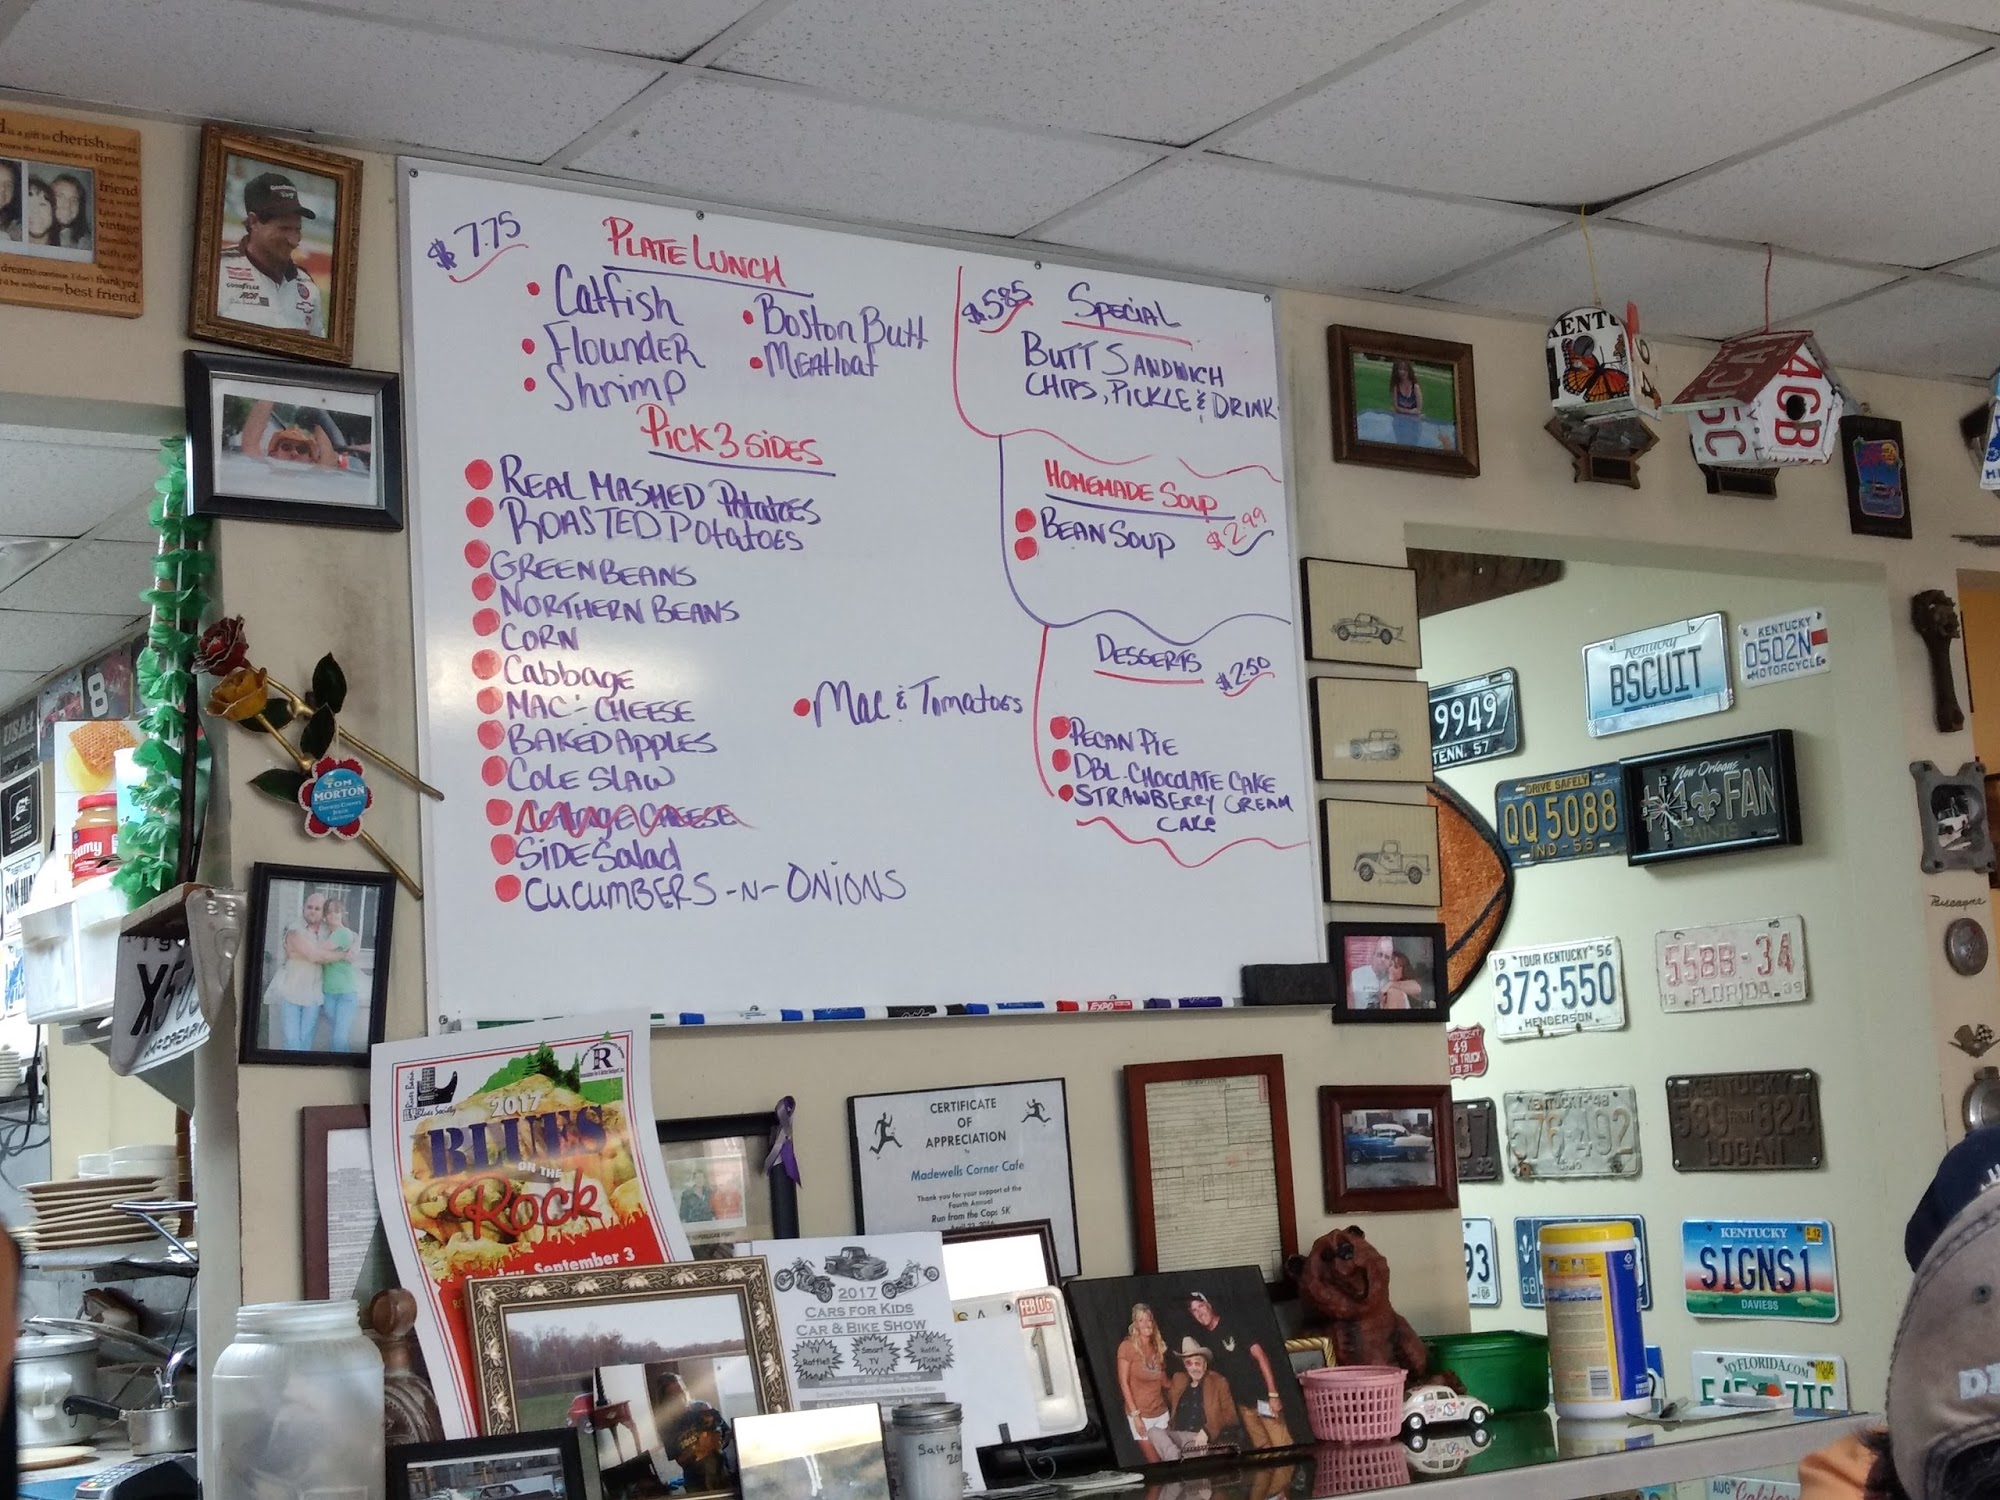 cherish
time and
friend
vintage
best friend.
GOODYEAR
$7.75
PLATE LUNCH
• Catfish
• Flounder
• Shrimp
• Boston Butt
• Meatloaf
PICK 3 SIDES
REAL MASHED Potatoes
ROASTED Potatoes
GREEN BEANS
NORTHERN BEANS
CORN
Cabbage
MAC & CHEESE
BAKED APPLES
COLE SLAW
Cottage CHEESE
SIDE Salad
CUCUMBERS -N- ONIONS
• Mac & Tomatoes
$5.85
SPECIAL
BUTT SANDWICH
CHIPS, PICKLE & DRINK
HOMEMADE SOUP
BEAN SOUP $2.99
DESSERTS
$2.50
PECAN PIE
DBL. CHOCOLATE CAKE
STRAWBERRY CREAM
CAKE
EXPO
TOM
MORTON
8
2017
BLUES
ON THE
Rock
September 3
CERTIFICATE
OF
APPRECIATION
Madewells Corner Cafe
Thank you for your support of the
Fourth Annual
Run from the Cops 5K
2017
CARS FOR KIDS
CAR & BIKE SHOW
TV
Raffles
Smart
TV
Raffle
Ticket
FEB 06
Kentucky
BSCUIT
KENTUCKY
0502N
MOTORCYCLE
9949
TENN. 57
DRIVE SAFELY
QQ 5088
IND - 56
New Orleans
#1 FAN
SAINTS
19 TOUR KENTUCKY 56
373·550
HENDERSON
55BB-34
19 FLORIDA 39
49
1931
KENTUCKY · 48
576·492
KENTUCKY
589 824
LOGAN
93
KENTUCKY
SIGNS1
DAVIESS
MYFLORIDA.COM
AUG California